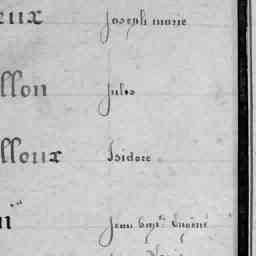 eux Joseph marie
llon Jules
lleux Isidore
n Jean Bapte Eugène